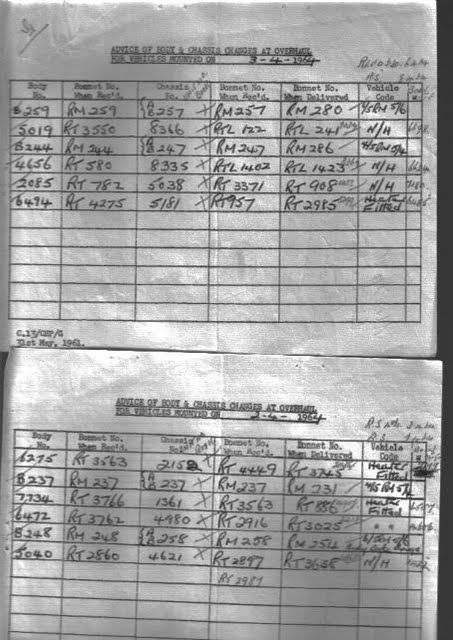 ADVICE OF BODY & CHASSIS CHANGES AT OVERHAUL
FOR VEHICLES MOUNTED ON 3-4-1964
Body No. Bonnet No. When Rec'd. Chassis No. Bonnet No. When Rec'd. Bonnet No. When Delivered Vehicle Code
B259 RM 259 A B 257 RM 257 RM 280 4/5RM 5/6
5019 RT 3550 8366 RTL 122 RTL 241 N/H
B244 RM 244 A B 247 RM 247 RM 286 4/5RM 5/4
4656 RT 580 8335 RTL 1402 RTL 1423 N/H
2085 RT 782 5038 RT 3371 RT 908 N/H
6494 RT 4275 5181 RT 957 RT 2985 Heater Fitted
C.13/CHF/G
31st May, 1961.
ADVICE OF BODY & CHASSIS CHANGES AT OVERHAUL
FOR VEHICLES MOUNTED ON 2-4-1964
Body No. Bonnet No. When Rec'd. Chassis No. Bonnet No. When Rec'd. Bonnet No. When Delivered Vehicle Code
6275 RT 3563 2152 RT 4449 RT 3745 Heater Fitted
B237 RM 237 A B 237 RM 237 RM 731 4/5 RM 5/4
7734 RT 3766 1361 RT 3563 RT 886 Heater Fitted
6472 RT 3762 4980 RT 2916 RT 3025 " "
B248 RM 248 A B 258 RM 258 RM 254 6/5RM 5/6
5040 RT 2860 4621 RT 2897 RT 3638 N/H
RT 2987